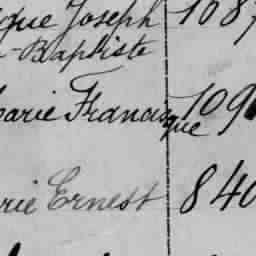 que Joseph 108
-Baptiste
arie Francisque 109
rie Ernest 840